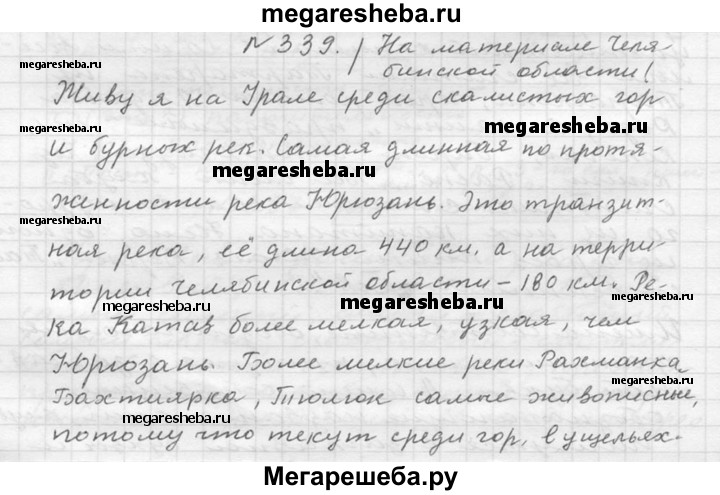 megaresheba.ru
№339. / На материале Челя
бинской области/
megaresheba.ru
megaresheba.ru
Живу я на Урале среди скалистых гор
megaresheba.ru
и бурных рек. Самая длинная по протя-
megaresheba.ru
megaresheba.ru
женности река Юрюзань. Это транзит-
megaresheba.ru
ная река, её длина 440 км. а на терри-
тории Челябинской области - 180 км. Ре-
megaresheba.ru
megaresheba.ru
ка Катав более мелкая, узкая, чем
Юрюзань. Более мелкие реки Рахманка,
megaresheba.ru
Бахтиярка, Тюлюк самые живописные,
megaresheba.ru
потому что текут среди гор, в ущельях.
Мегарешеба.ру